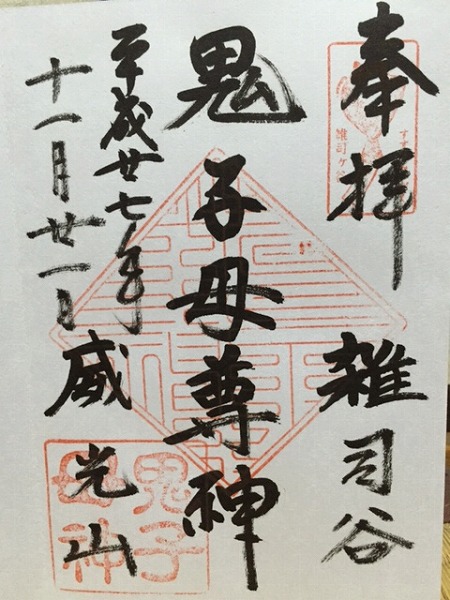 奉拝 雑司谷
鬼子母尊神
平成廿七年
十一月廿一日
威光山
鬼子
母神